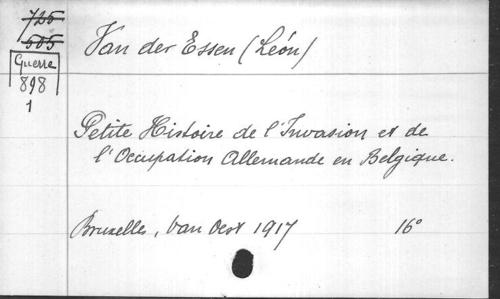 725
505
Guerre
898
1
Van der Essen (Léon)
Petite Histoire de l'Invasion et de
l'Occupation Allemande en Belgique.
Bruxelles, Van Oest 1917 16°